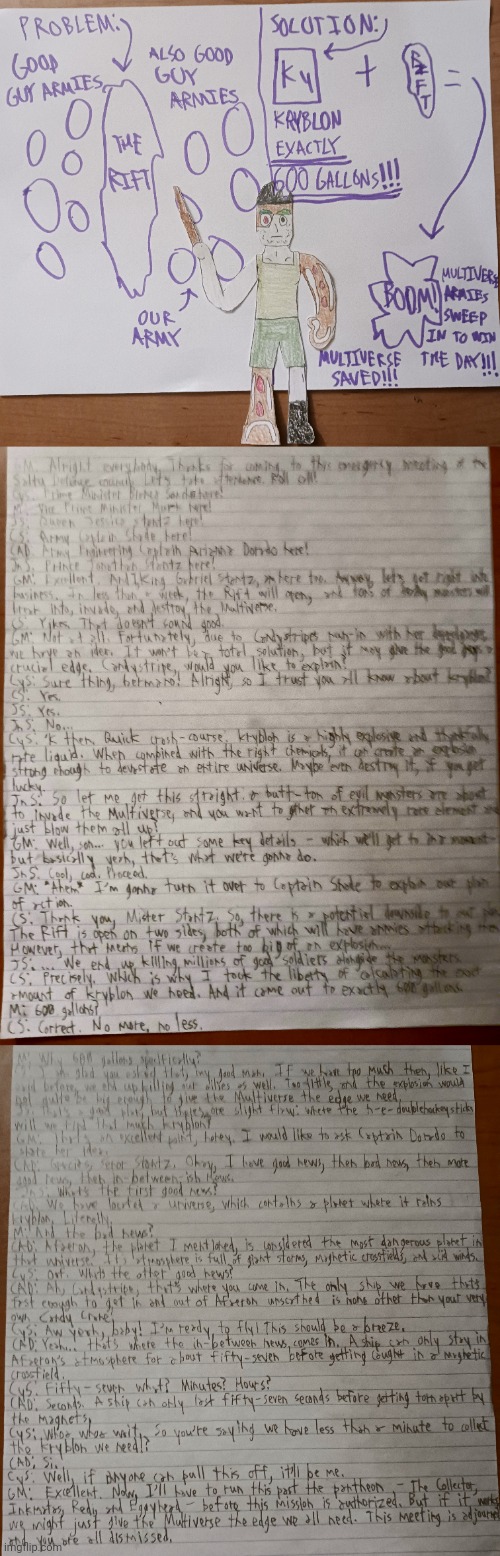 PROBLEM:
GOOD
GUY ARMIES
THE
RIFT
ALSO GOOD
GUY
ARMIES
OUR
ARMY
SOLUTION:
Ky + RIFT =
KRYBLON
EXACTLY
600 GALLONS!!!
BOOM!
MULTIVERSE
ARMIES
SWEEP
IN TO WIN
THE DAY!!!
MULTIVERSE
SAVED!!!
GM: Alright everybody, Thanks for coming to this emergency meeting of the
council. Let's take attendance. Roll call!
Prime Minister here!
M: Vice Prime Minister here!
JS: Queen Jessica Stantz here!
CS: Army Captain Shade here!
CAD: Army Engineering Captain Dorado here!
JnS: Prince Jonathan Stantz here!
GM: Excellent. And I, King Gabriel Stantz, am here too. Anyway, let's get right into
business. In less than a week, the Rift will open, and tons of monsters will
break into, invade, and destroy the Multiverse.
CS: Yikes. That doesn't sound good.
GM: Not at all. Fortunately, due to Candystripes run-in with her
we have an idea. It won't be a total solution, but it may give the good guys a
crucial edge. Candystripe, would you like to explain?
CyS: Sure thing, Alright, so I trust you all know about kryblon?
CS: Yes.
JS: Yes.
JnS: No...
CyS: 'K then. Quick crash-course, kryblon is a highly explosive and thankfully
rare liquid. When combined with the right chemicals, it can create an explosion
strong enough to devastate an entire universe. Maybe even destroy it, if you get
lucky.
JnS: So let me get this straight. a butt-ton of evil monsters are about
to invade the Multiverse, and you want to gather an extremely rare element and
just blow them all up?
GM: Well, son... you left out some key details - which we'll get to in a moment -
but basically yeah, that's what we're gonna do.
JnS: Cool, cool. Proceed.
GM: *Ahem* I'm gonna turn it over to Captain Shade to explain our plan
of action.
CS: Thank you, Mister Stantz. So, there is a potential downside to our plan.
The Rift is open on two sides, both of which will have armies attacking them.
However, that means if we create too big of an explosion...
JS: ... We end up killing millions of good soldiers alongside the monsters.
CS: Precisely, which is why I took the liberty of calculating the exact
amount of kryblon we need. And it came out to exactly 600 gallons.
M: 600 gallons?
CS: Correct. No more, no less.
M: Why 600 gallons specifically?
glad you asked that, my good man. If we have too much then, like I
said before, we end up killing our allies as well. Too little, and the explosion would
not quite be big enough to give the Multiverse the edge we need.
That's a good plan, but there's one slight flaw: where the h-e-doublehockeysticks
will we find that much kryblon?
GM: That's an excellent point, honey. I would like to ask Captain Dorado to
share her idea.
CAD: Gracias, Señor Stantz. Okay, I have good news, then bad news, then more
good news, then in-between-ish news.
What's the first good news?
We have located a universe, which contains a planet where it rains
kryblon. Literally.
M: And the bad news?
CAD: Afzeron, the planet I mentioned, is considered the most dangerous planet in
that universe. It's atmosphere is full of giant storms, magnetic crossfields, and acid winds.
CyS: Oof. What's the other good news?
CAD: Ah, Candystripe, that's where you come in. The only ship we have that's
fast enough to get in and out of Afzeron unscathed is none other than your very
own, Candy Crane!
CyS: Aw yeah, baby! I'm ready to fly! This should be a breeze.
CAD: Yeah... that's where the in-between news comes in. A ship can only stay in
Afzeron's atmosphere for about fifty-seven before getting caught in a magnetic
crossfield.
CyS: Fifty-seven what? Minutes? Hours?
CAD: Seconds. A ship can only last fifty-seven seconds before getting torn apart by
the magnets.
CyS: Whoa whoa wait, so you're saying we have less than a minute to collect
the kryblon we need?
CAD: Si.
CyS: Well, if anyone can pull this off, it'll be me.
GM: Excellent. Now, I'll have to run this past the pantheon - The Collector,
Inkmatas, Red, and Egghead - before this mission is authorized. But if it works,
we might just give the Multiverse the edge we all need. This meeting is adjourned
and you are all dismissed.
imgflip.com